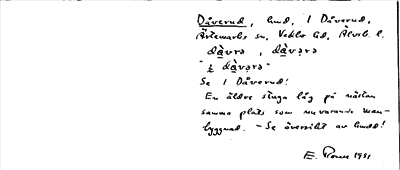 Dåverud, hmd, 1 Dåverud,
Ärtemarks sn, Vedbo hd, Älvsb. l.
dåvrə, dåvərə
"i dåvərə"
Se 1 Dåverud!
En äldre stuga låg på nästan
samma plats som nuvarande man-
byggnad. - Se översikt av hmdd!
E. 1951